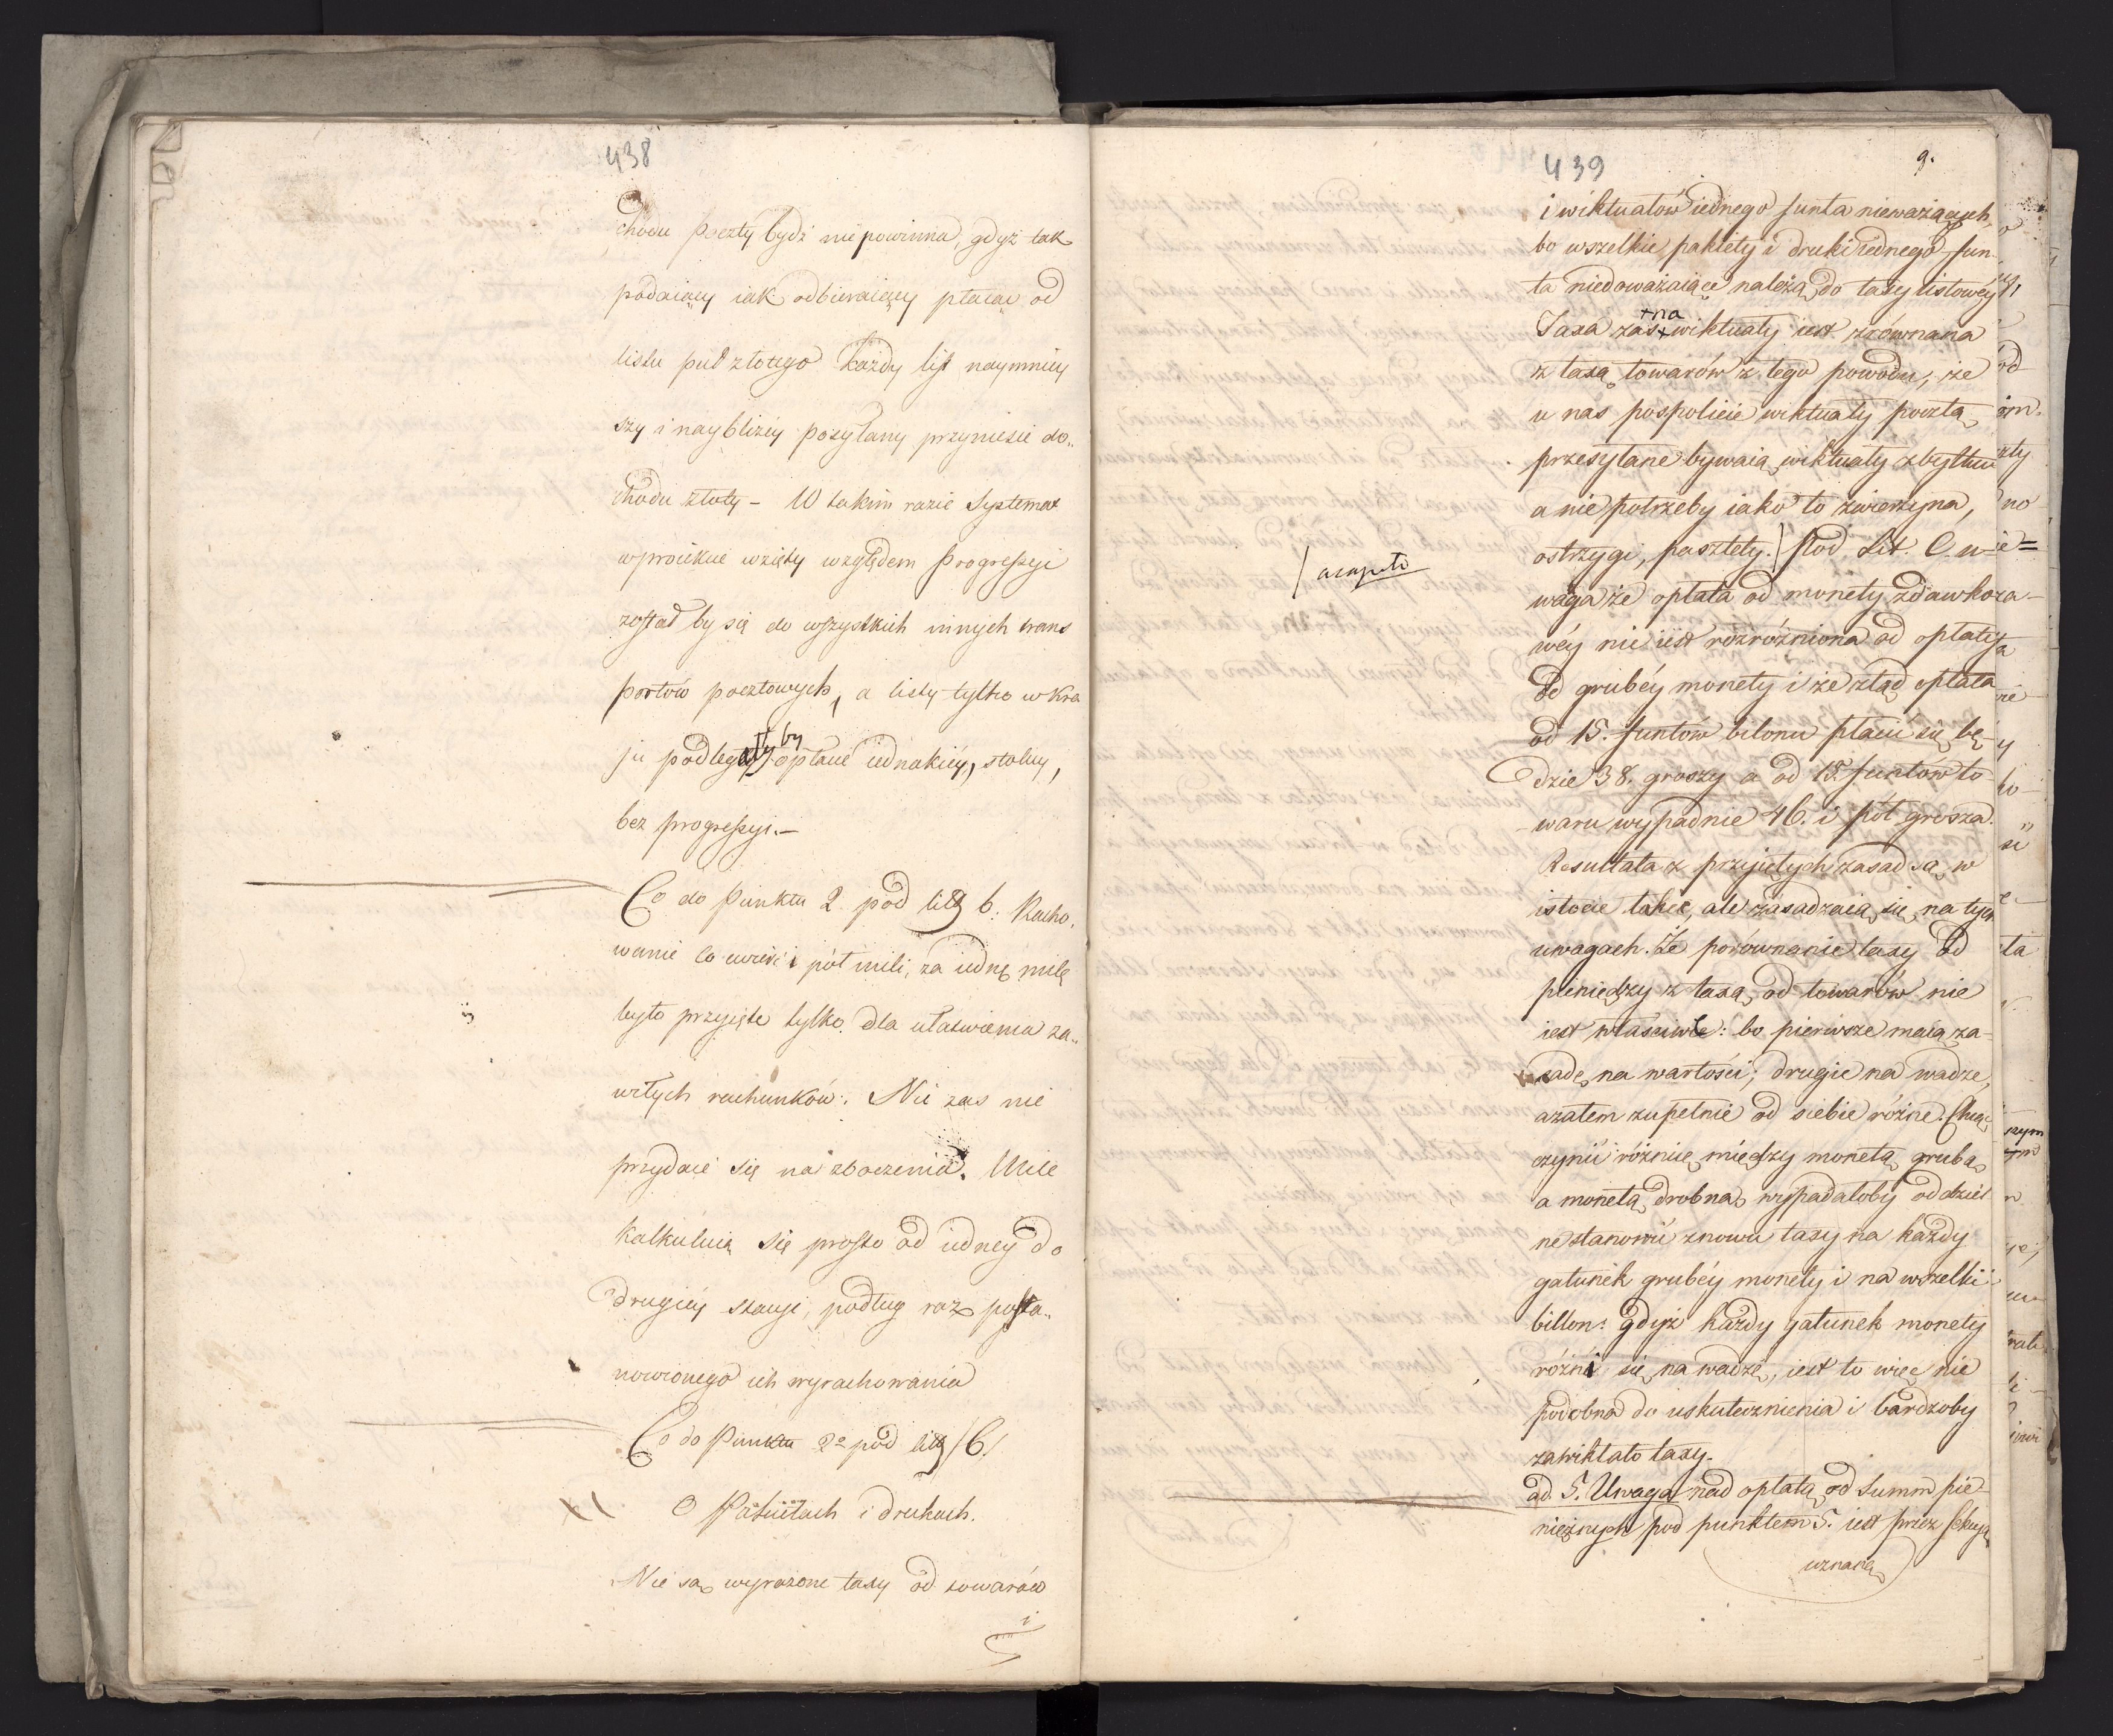 438
chodu poczty bydź nie powinna, gdyż tak
podaiący iak odbieraiący płacąc od
listu pułzłotego każdy list naymniey
szy i naybliżey posyłany przyniesie do„
chodu złoty – W takim razie Systemat
w proiekcie wzięty względem Progressyi
zostałby się do wszystkich innych trans
portów pocztowych, a listy tylko w Kra
ju podległyby opłacie iednakiéy, stałey,
bez progressyi. –
Co do Punktu 2. pod litt b: Racho„
wanie co ćwierć i pół mili, za iednę milę
było przyięte tylko dla ułatwienia za„
wiłych rachunków: Nie zaś nie
przydaie się na zboczenia. Mile
kalkuluią się prosto od iedney do
drugiéy stacyi, podług raz posta„
nowionego ich wyrachowania
Co do Punktu 2º pod litt /C/
O Pakietach i drukach.
Nie są wyrażone taxy od towarów
i
439
9.
i wiktuałów iednego funta nieważących,
bo wszelkie pakiety i druki iednego fun
ta niedoważaiące należą do taxy listowéy
+na
Taxa zaś + wiktuały iest zrównana
z taxą towarów z tego powodu, że
u nas pospolicie wiktuały pocztą
przesyłane bywaią wiktuały zbytku
a nie potrzeby iako to zwierzyna,
ostrzygi, pasztety.) Pod Lit. C. u=
/ acapito
waga że opłata od monety zdawko
wéy nie iest rozróżniona od opłaty
od grubéy monety i że ztąd opłata
od 15. funtów bilonu płacić się bę
dzie 38. groszy a od 15. funtów to
waru wypadnie 46. i pół grosza.
Resultata z przyjętych zasad są w
istocie takie, ale zasadzaią się na tych
uwagach. Że porównanie taxy od
pieniędzy z taxą od towarów nie
iest właściwe: bo pierwsze maią za
sadę na wartości; drugie na wadze,
azatem zupełnie od siebie różne. Chcąc
czynić różnicę między monetą grubą
a monetą drobną wypadałoby oddziel
ne stanowić znowu taxy na każdy
gatunek grubéy monety i na wszelki
billon: gdyż każdy gatunek monety
różni się na wadze, iest to więc nie
podobna do uskutecznienia i bardzoby
zawikłało taxy.
ad 5. Uwaga nad opłatą od Summ pie
niężnych pod punktem 5. iest przez Sekcyą
uznaną